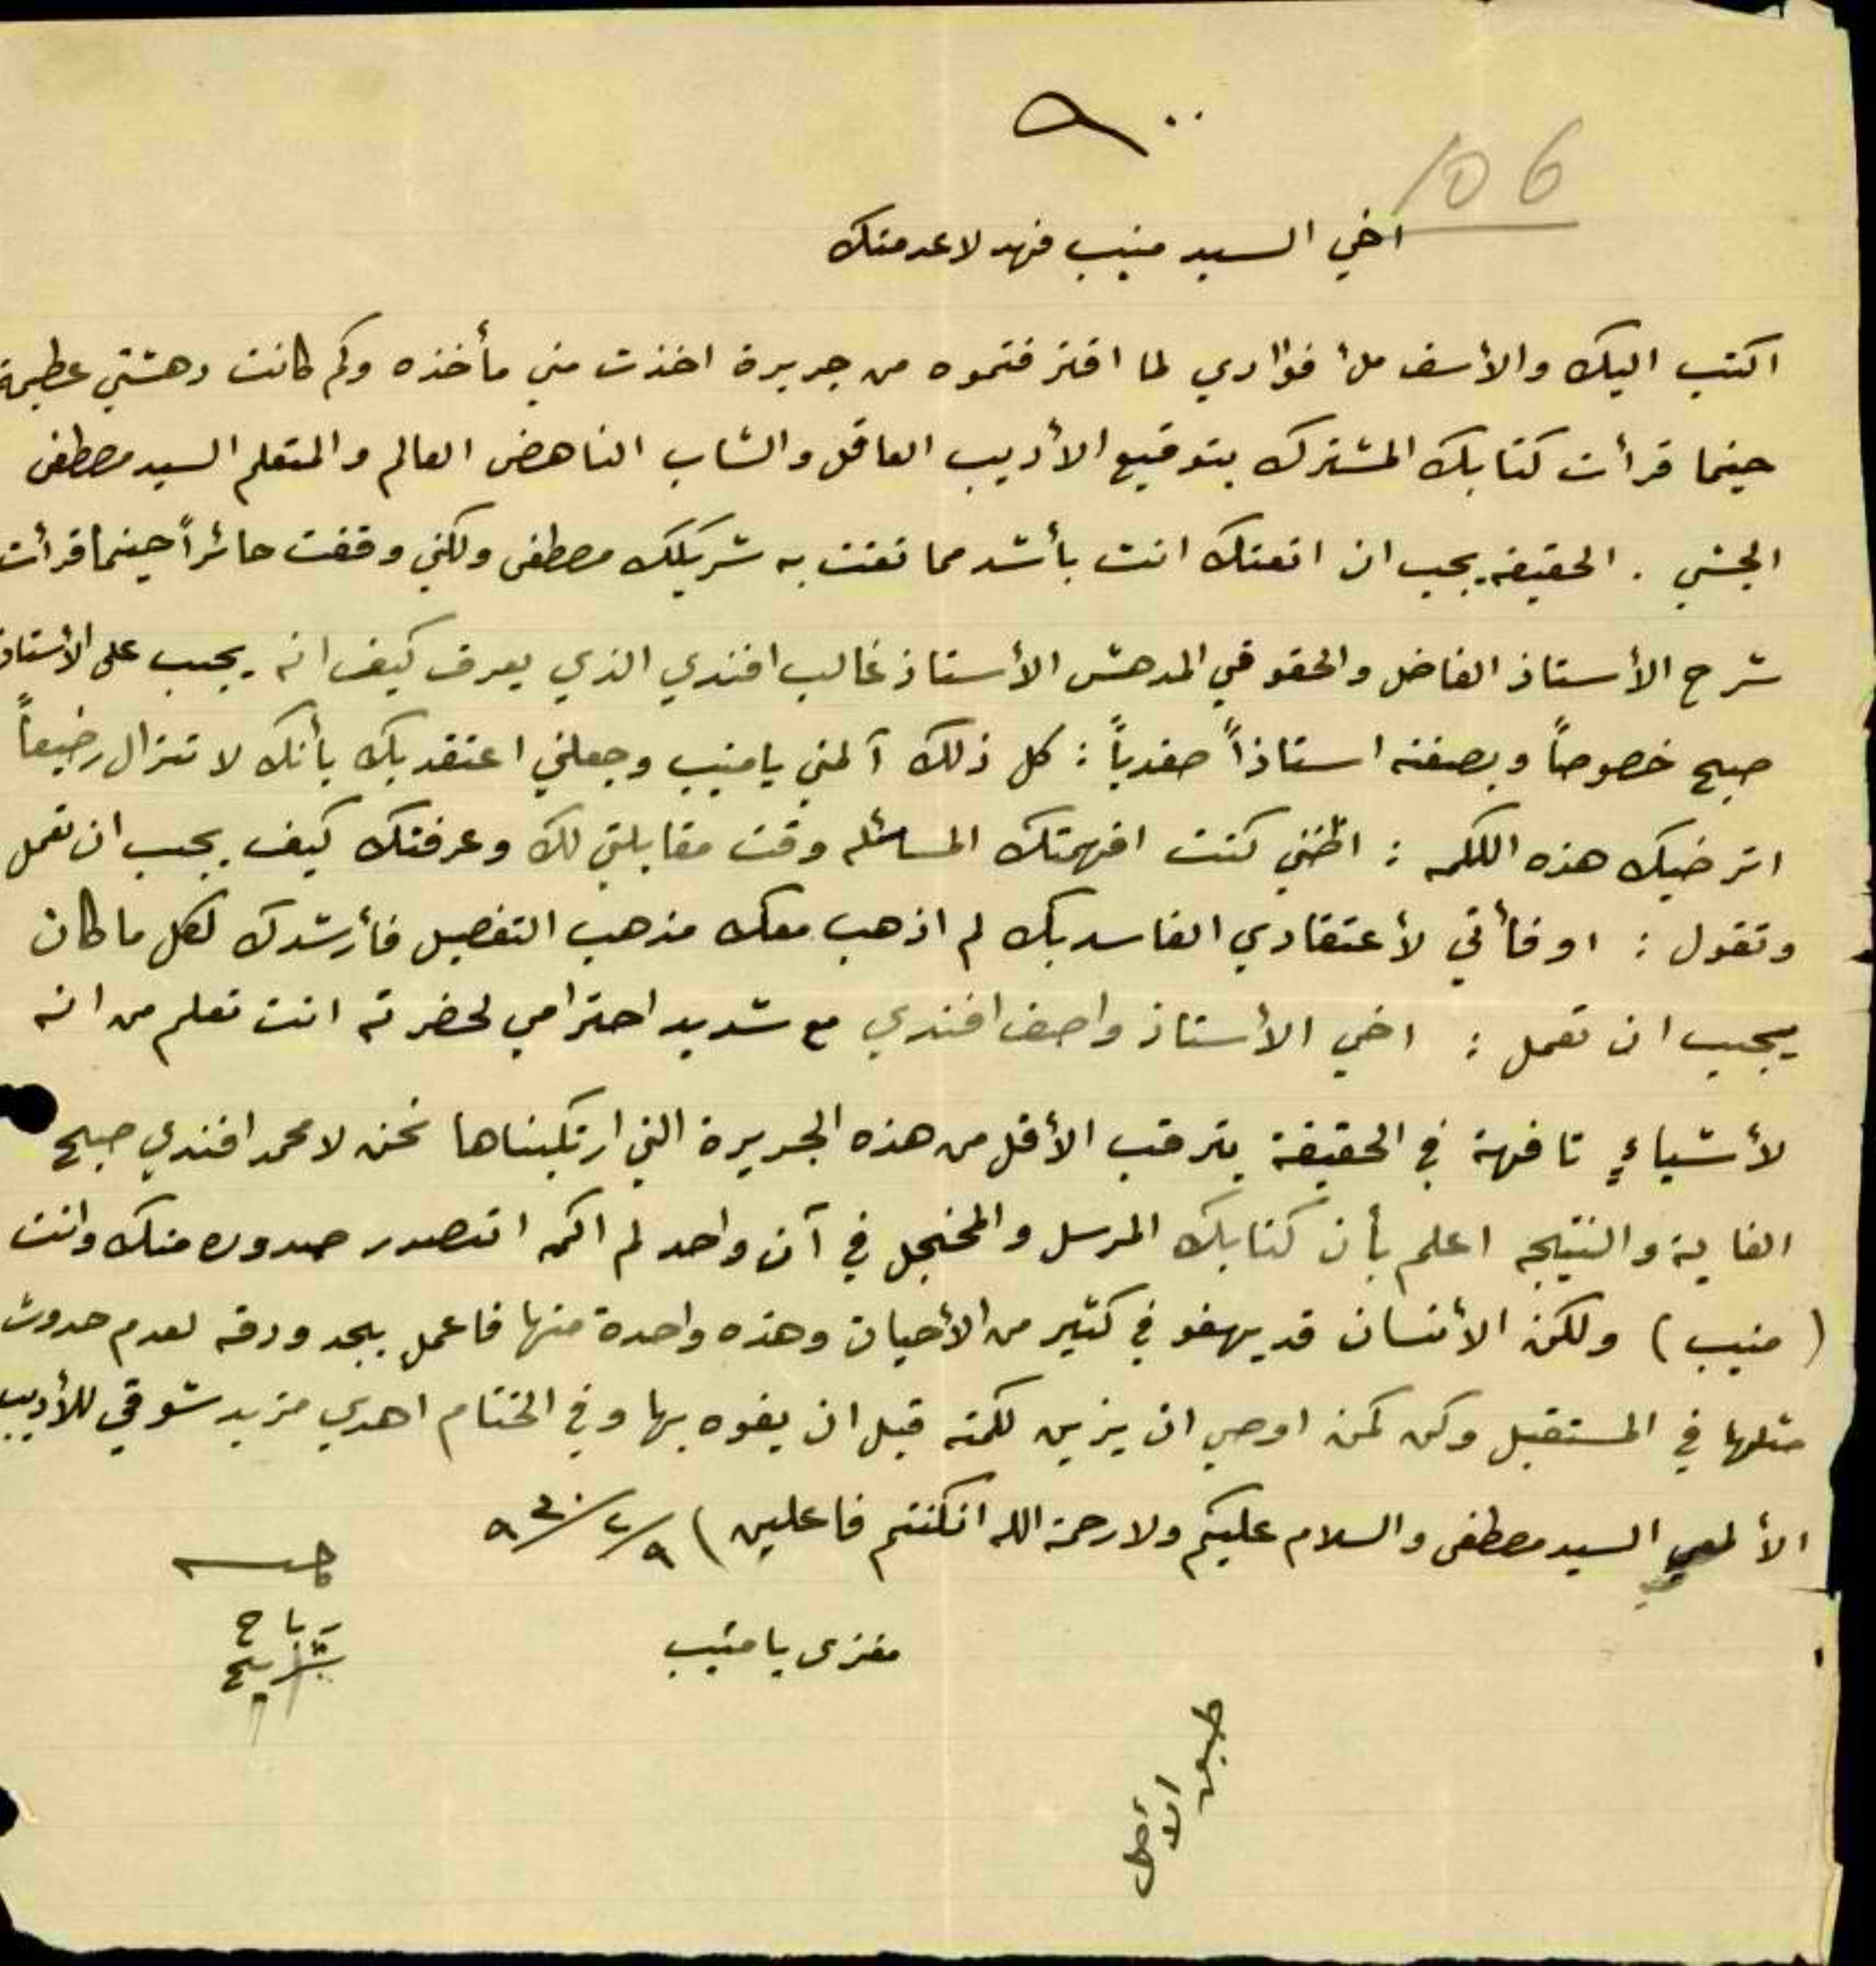 106
اخي السيد منيب فهد لا عدمتك
اكتب اليك والأسف ملأ فؤادي لما اقترفتموه من جريرة اخذت مني مأخذه وكم كانت دهشتي عظيمة
حينما قرأت كتابك المشترك بتوقيع الأديب العاقل والشاب الناهض العالم والمتعلم السيد مصطفى
الجشي . الحقيقة يجب ان انعتك انت بأشد مما نعت به شريكك مصطفى ولكني وقفت حائراً حينما قرأت
شرح الأستاذ الفاضل والحقوقي المدهش الأستاذ غالب افندي الذي يعرف كيف انه يجب على الأستاذ
صبح خصوصاً وبصفته استاذاً صفدياً : كل ذلك آلمني يا منيب وجعلني اعتقد بك بأنك لا تزال رضيعاً
اترضيك هذه الكلمه : اظنني كنت افهمتك المسائله وقت مقابلتي لك وعرفتك كيف يجب ان تعمل
وتقول : او فأني لأعتقادي الفاسد بك لم اذهب معك مذهب التفصيل فأرشدك لكل ما كان
يجب ان تعمل : اخي الأستاذ واصف افندي مع شديد احترامي لحضرته انت تعلم من انه
لأشياءٍ تافهة في الحقيقة يترقب الأقل من هذه الجريرة التي ارتكبناها نحن لا محمد افندي صبح
الغاية والنتيجه اعلم بأن كتابك المرسل والمخجل في آن واحد لم اكن اتصور صدوره منك وانت
(منيب) ولكن الأنسان قد يهفو في كثير من الأحيان وهذه واحدة منها فاعمل بجد ودقه لعدم حدوث
مثلها في المستقبل وكن كمن اوصي ان يزين كلمته قبل ان يفوه بها وفي الختام اهدي مزيد شوقي للأديب
الألمعي السيد مصطفى والسلام عليكم ولا رحمة الله ان كنتم فاعلين ) ٩/٢/٩٣٠
رباح
مغزى يا منيب
طبق
الأصل